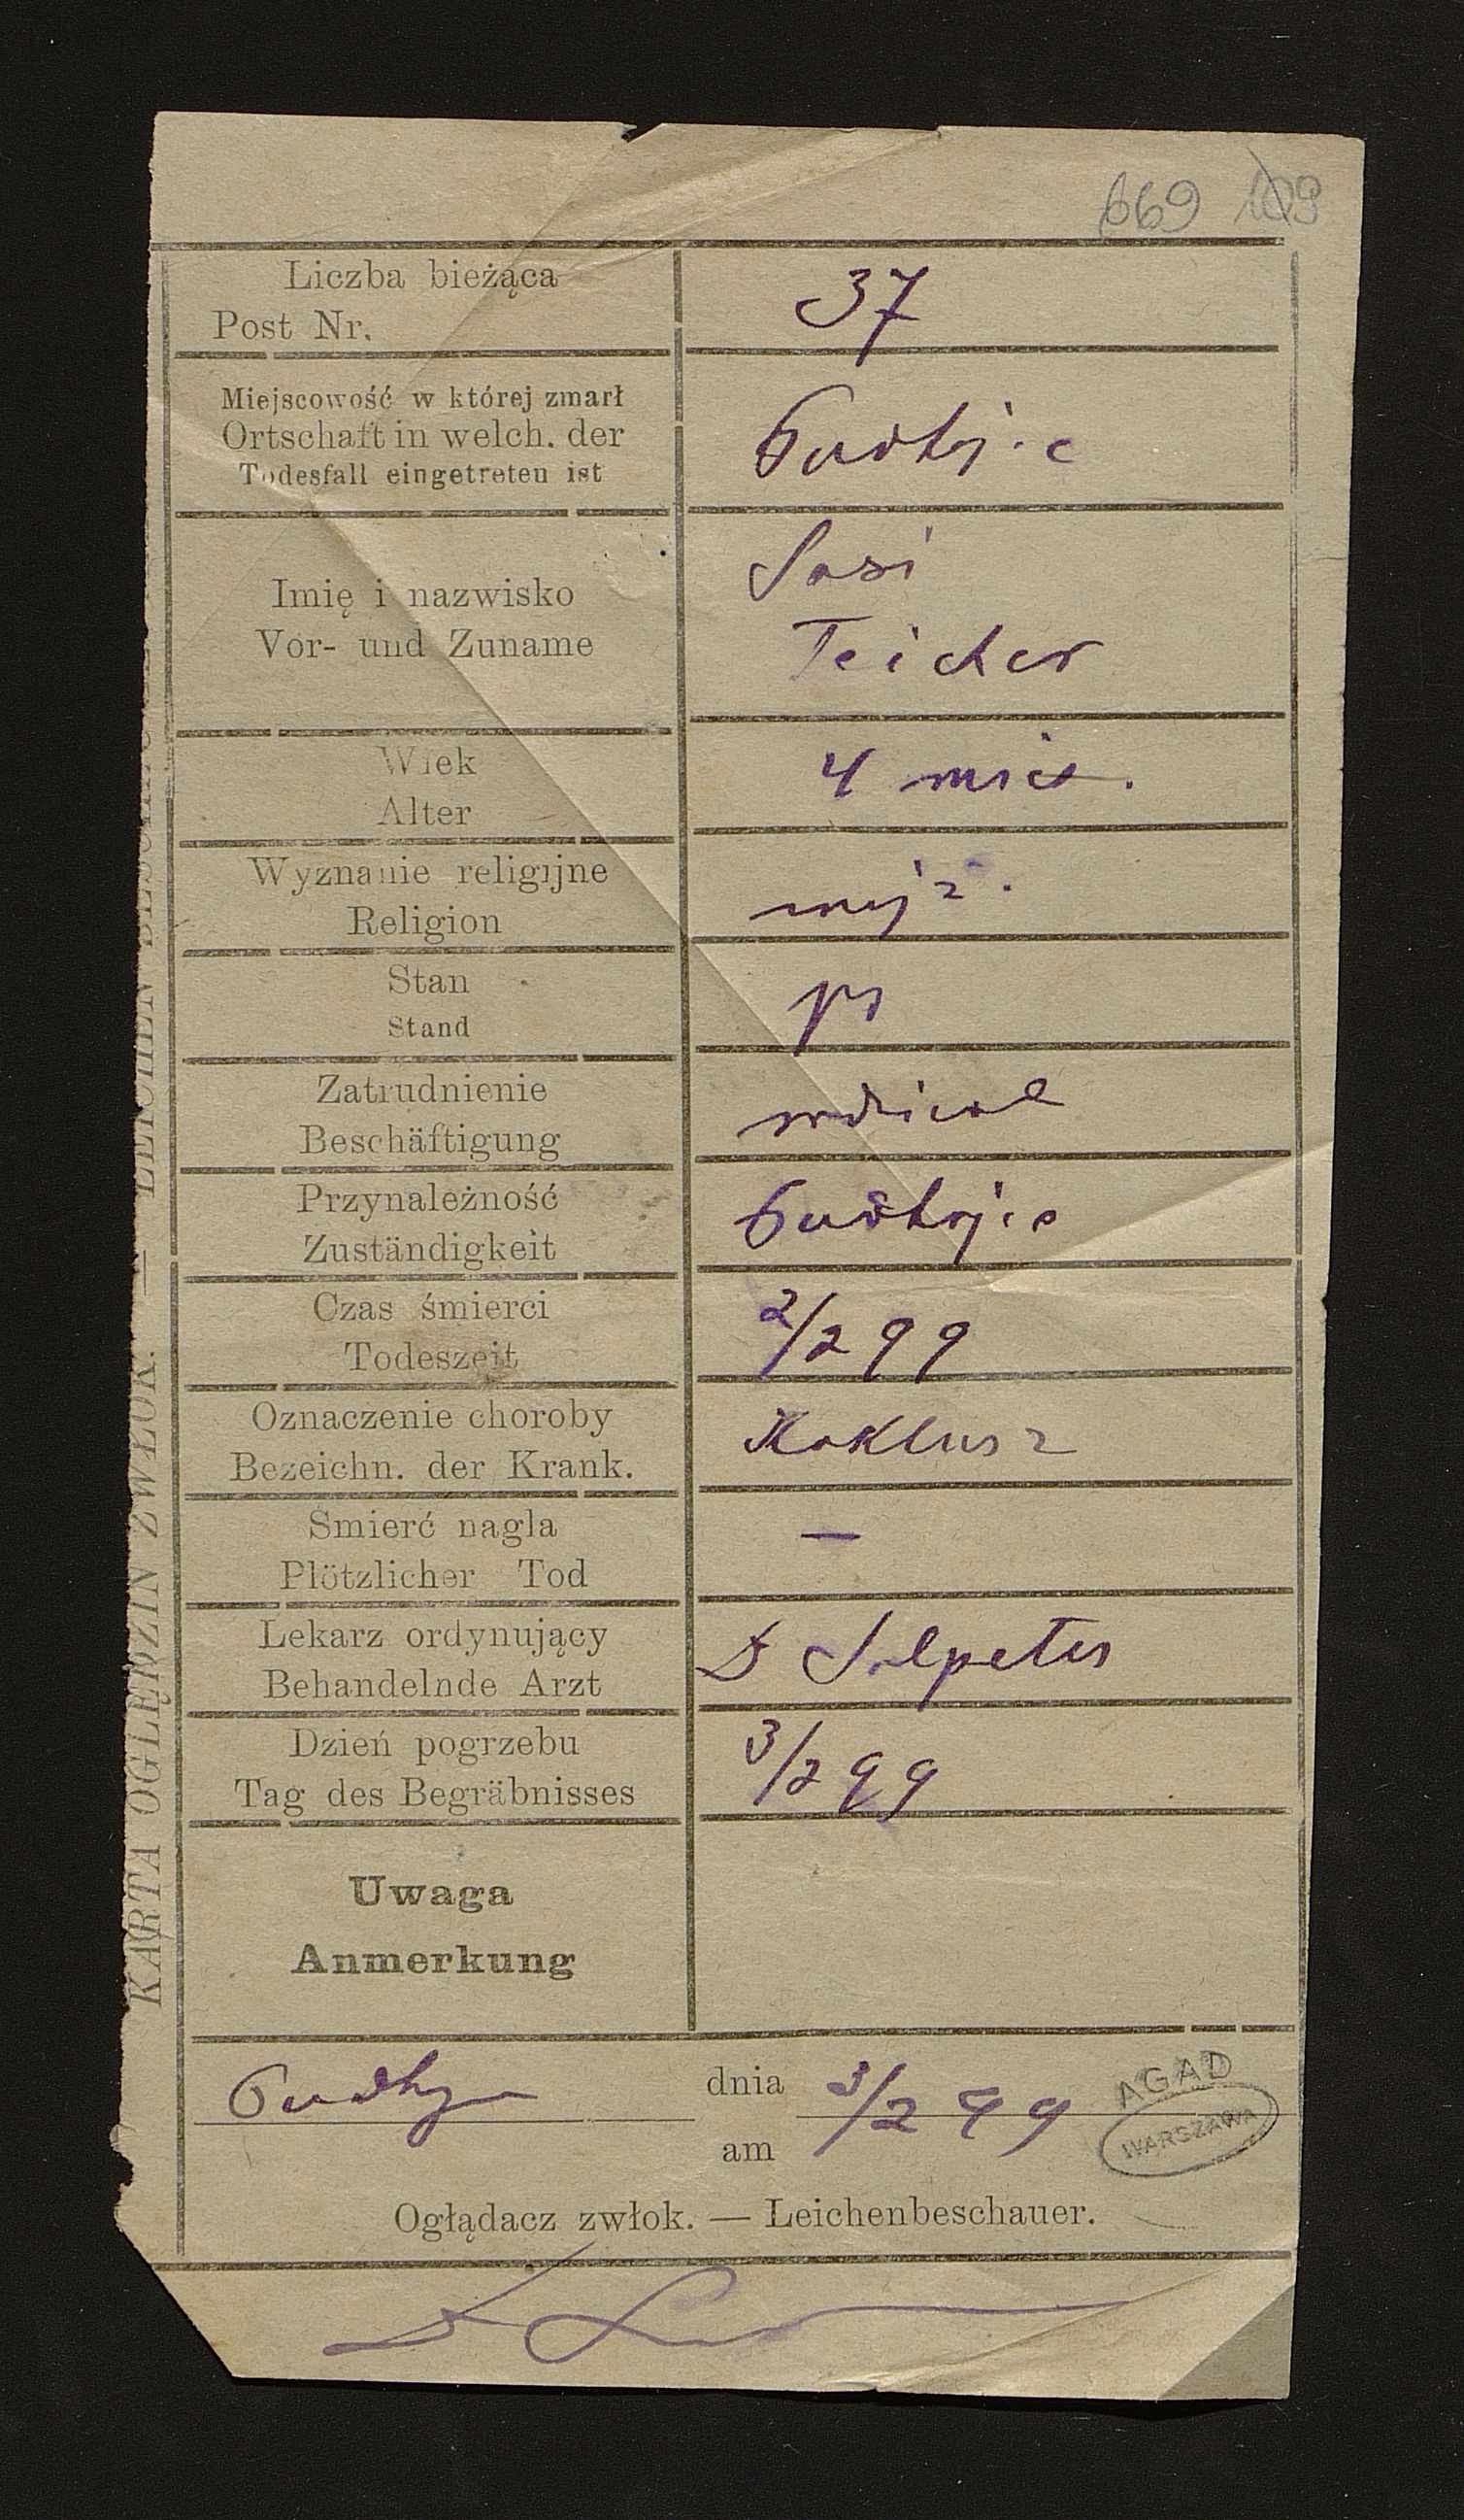 669 109
Liczba bieżąca
Post Nr.
37
Miejscowość w której zmarł
Ortschaft in welch. der
Todesfall eingetreten ist
Podhajce
Imię i nazwisko
Vor- und Zuname
Sosi
Teicher
Wiek
Alter
4 mies.
Wyznanie religijne
Religion
mojż.
Stan
Stand
Zatrudnienie
Beschäftigung
Przynależność
Zuständigkeit
Podhajce
Czas śmierci
Todeszeit
2/2 99
Oznaczenie choroby
Bezeichn. der Krank.
Koklusz
Śmierć nagla
Plötzlicher Tod
—
Lekarz ordynujący
Behandelnde Arzt
Dr Salpeter
Dzień pogrzebu
Tag des Begräbnisses
3/2 99
Uwaga
Anmerkung
Podhajce dnia 3/2 99
am
AGAD
WARSZAWA
Oglądacz zwłok. — Leichenbeschauer.
KARTA OGLĘDZIN ZWŁOK. — LEICHEN BESCHAU